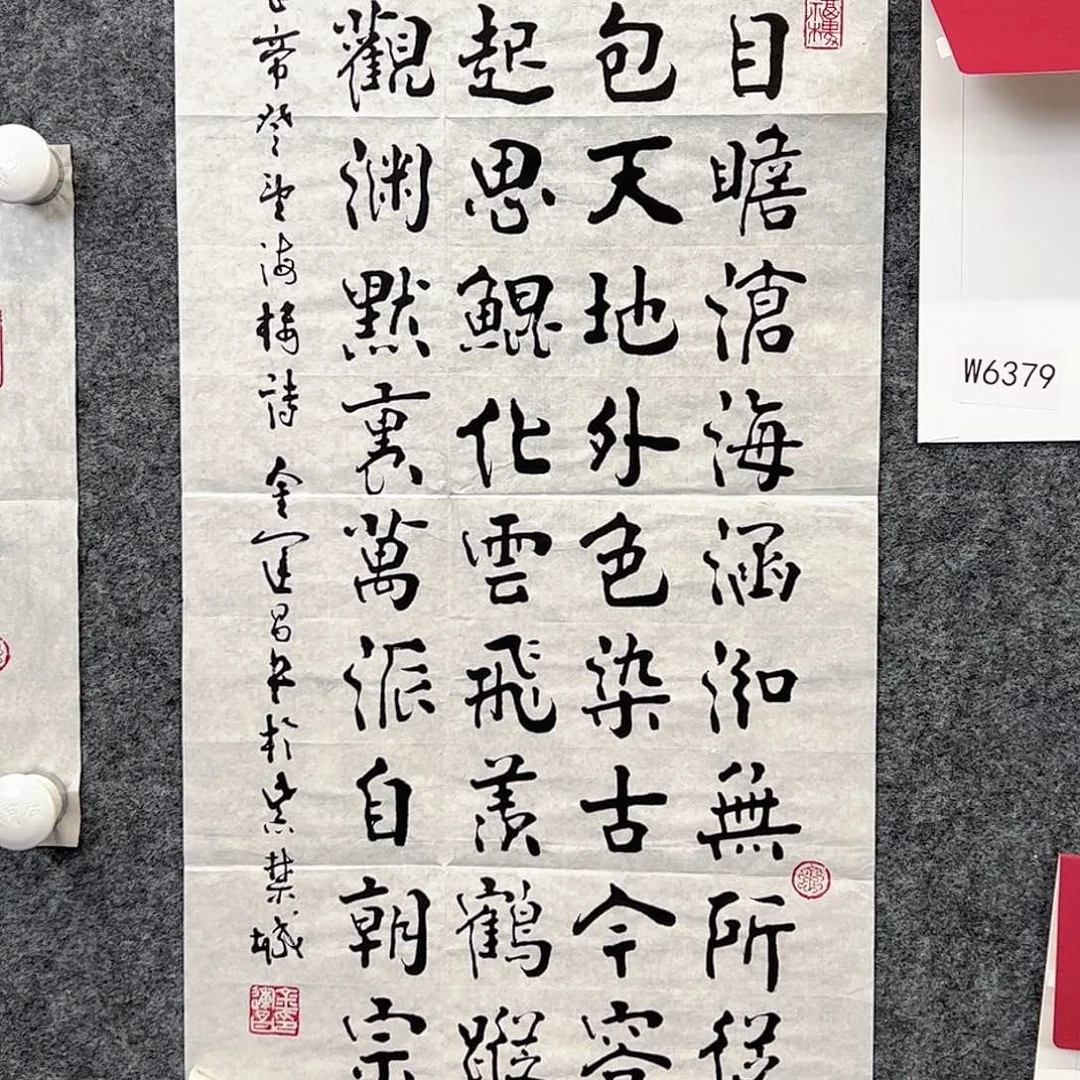 目瞻滄海涵洳無所從
包天地外色染古今容
起思鯤化雲飛羨鶴蹤
觀淵默裏萬派自朝宗
帝登望海樓詩 金運昌書於紫禁城
W6379